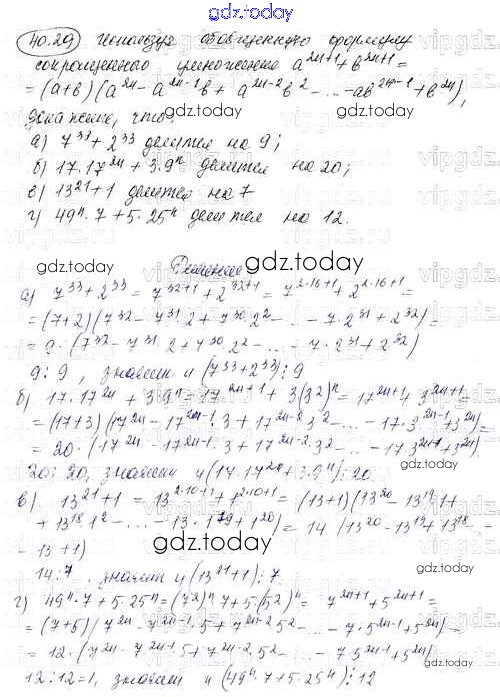 gdz.today
40.29 Используя обобщенную формулу
сокращенного умножения a^{2n+1}+b^{2n+1}=
=(a+b)(a^{2n}-a^{2n-1}b+a^{2n-2}b^2-...-ab^{2n-1}+b^{2n}),
докажите, что:
а) 7^{33}+2^{33} делится на 9;
б) 17·17^{2n}+3·9^n делится на 20;
в) 13^{21}+1 делится на 7
г) 49^n·7+5·25^n делится на 12.
Решение
а) 7^{33}+2^{33}=7^{32+1}+2^{32+1}=7^{2·16+1}+2^{2·16+1}=
=(7+2)(7^{32}-7^{31}2+7^{30}2^2-...-7·2^{31}+2^{32})=
=9·(7^{32}-7^{31}2+7^{30}2^2-...-7·2^{31}+2^{32})
9⋮9, значит и (7^{33}+2^{33})⋮9
б) 17·17^{2n}+3·9^n=17^{2n+1}+3(3^2)^n=17^{2n+1}+3^{2n+1}=
=(17+3)(17^{2n}-17^{2n-1}·3+17^{2n-2}3^2-...-17·3^{2n-1}+3^{2n})=
=20·(17^{2n}-17^{2n-1}·3+17^{2n-2}·3^2-...-17·3^{2n-1}+3^{2n})
20⋮20, значит и (17·17^{2n}+3·9^n)⋮20
в) 13^{21}+1=13^{2·10+1}+1^{2·10+1}=(13+1)(13^{20}-13^{19}·1+
+13^{18}1^2-...-13·1^{19}+1^{20})=14(13^{20}-13^{19}+13^{18}-...-
-13+1)
14⋮7, значит и (13^{21}+1)⋮7
г) 49^n·7+5·25^n=(7^2)^n·7+5·(5^2)^n=7^{2n+1}+5^{2n+1}=
=(7+5)(7^{2n}-7^{2n-1}·5+7^{2n-2}5^2-...-7·5^{2n-1}+5^{2n})=
=12·(7^{2n}-7^{2n-1}·5+7^{2n-2}·5^2-...-7·5^{2n-1}+5^{2n})
12:12=1, значит и (49^n·7+5·25^n)⋮12
gdz.today
gdz.today
gdz.today
gdz.today
gdz.today
gdz.today
gdz.today
gdz.today
gdz.today